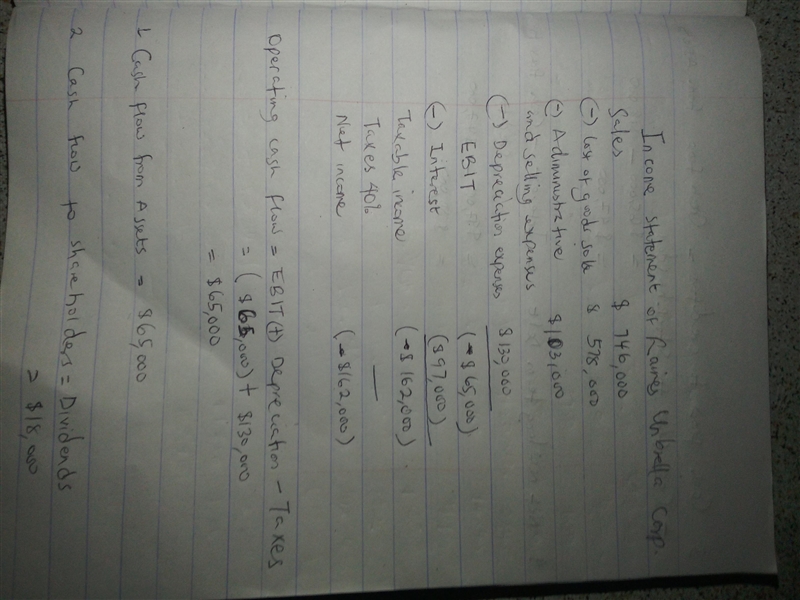 Income Statement of Raines Umbrella Corp.
Sales $ 746,000
(-) Cost of goods sold $ 578,000
(-) Administrative $ 103,000
and selling expenses
(-) Depreciation expenses $130,000
EBIT (-$65,000)
(-) Interest ($97,000)
Taxable income (-$162,000)
Taxes 40% —
Net income (-$162,000)
Operating cash flow = EBIT(+) Depreciation - Taxes
= ($65,000) + $130,000
= $65,000
1 Cash flow from Assets = $65,000
2 Cash flow to shareholders = Dividends
= $18,000